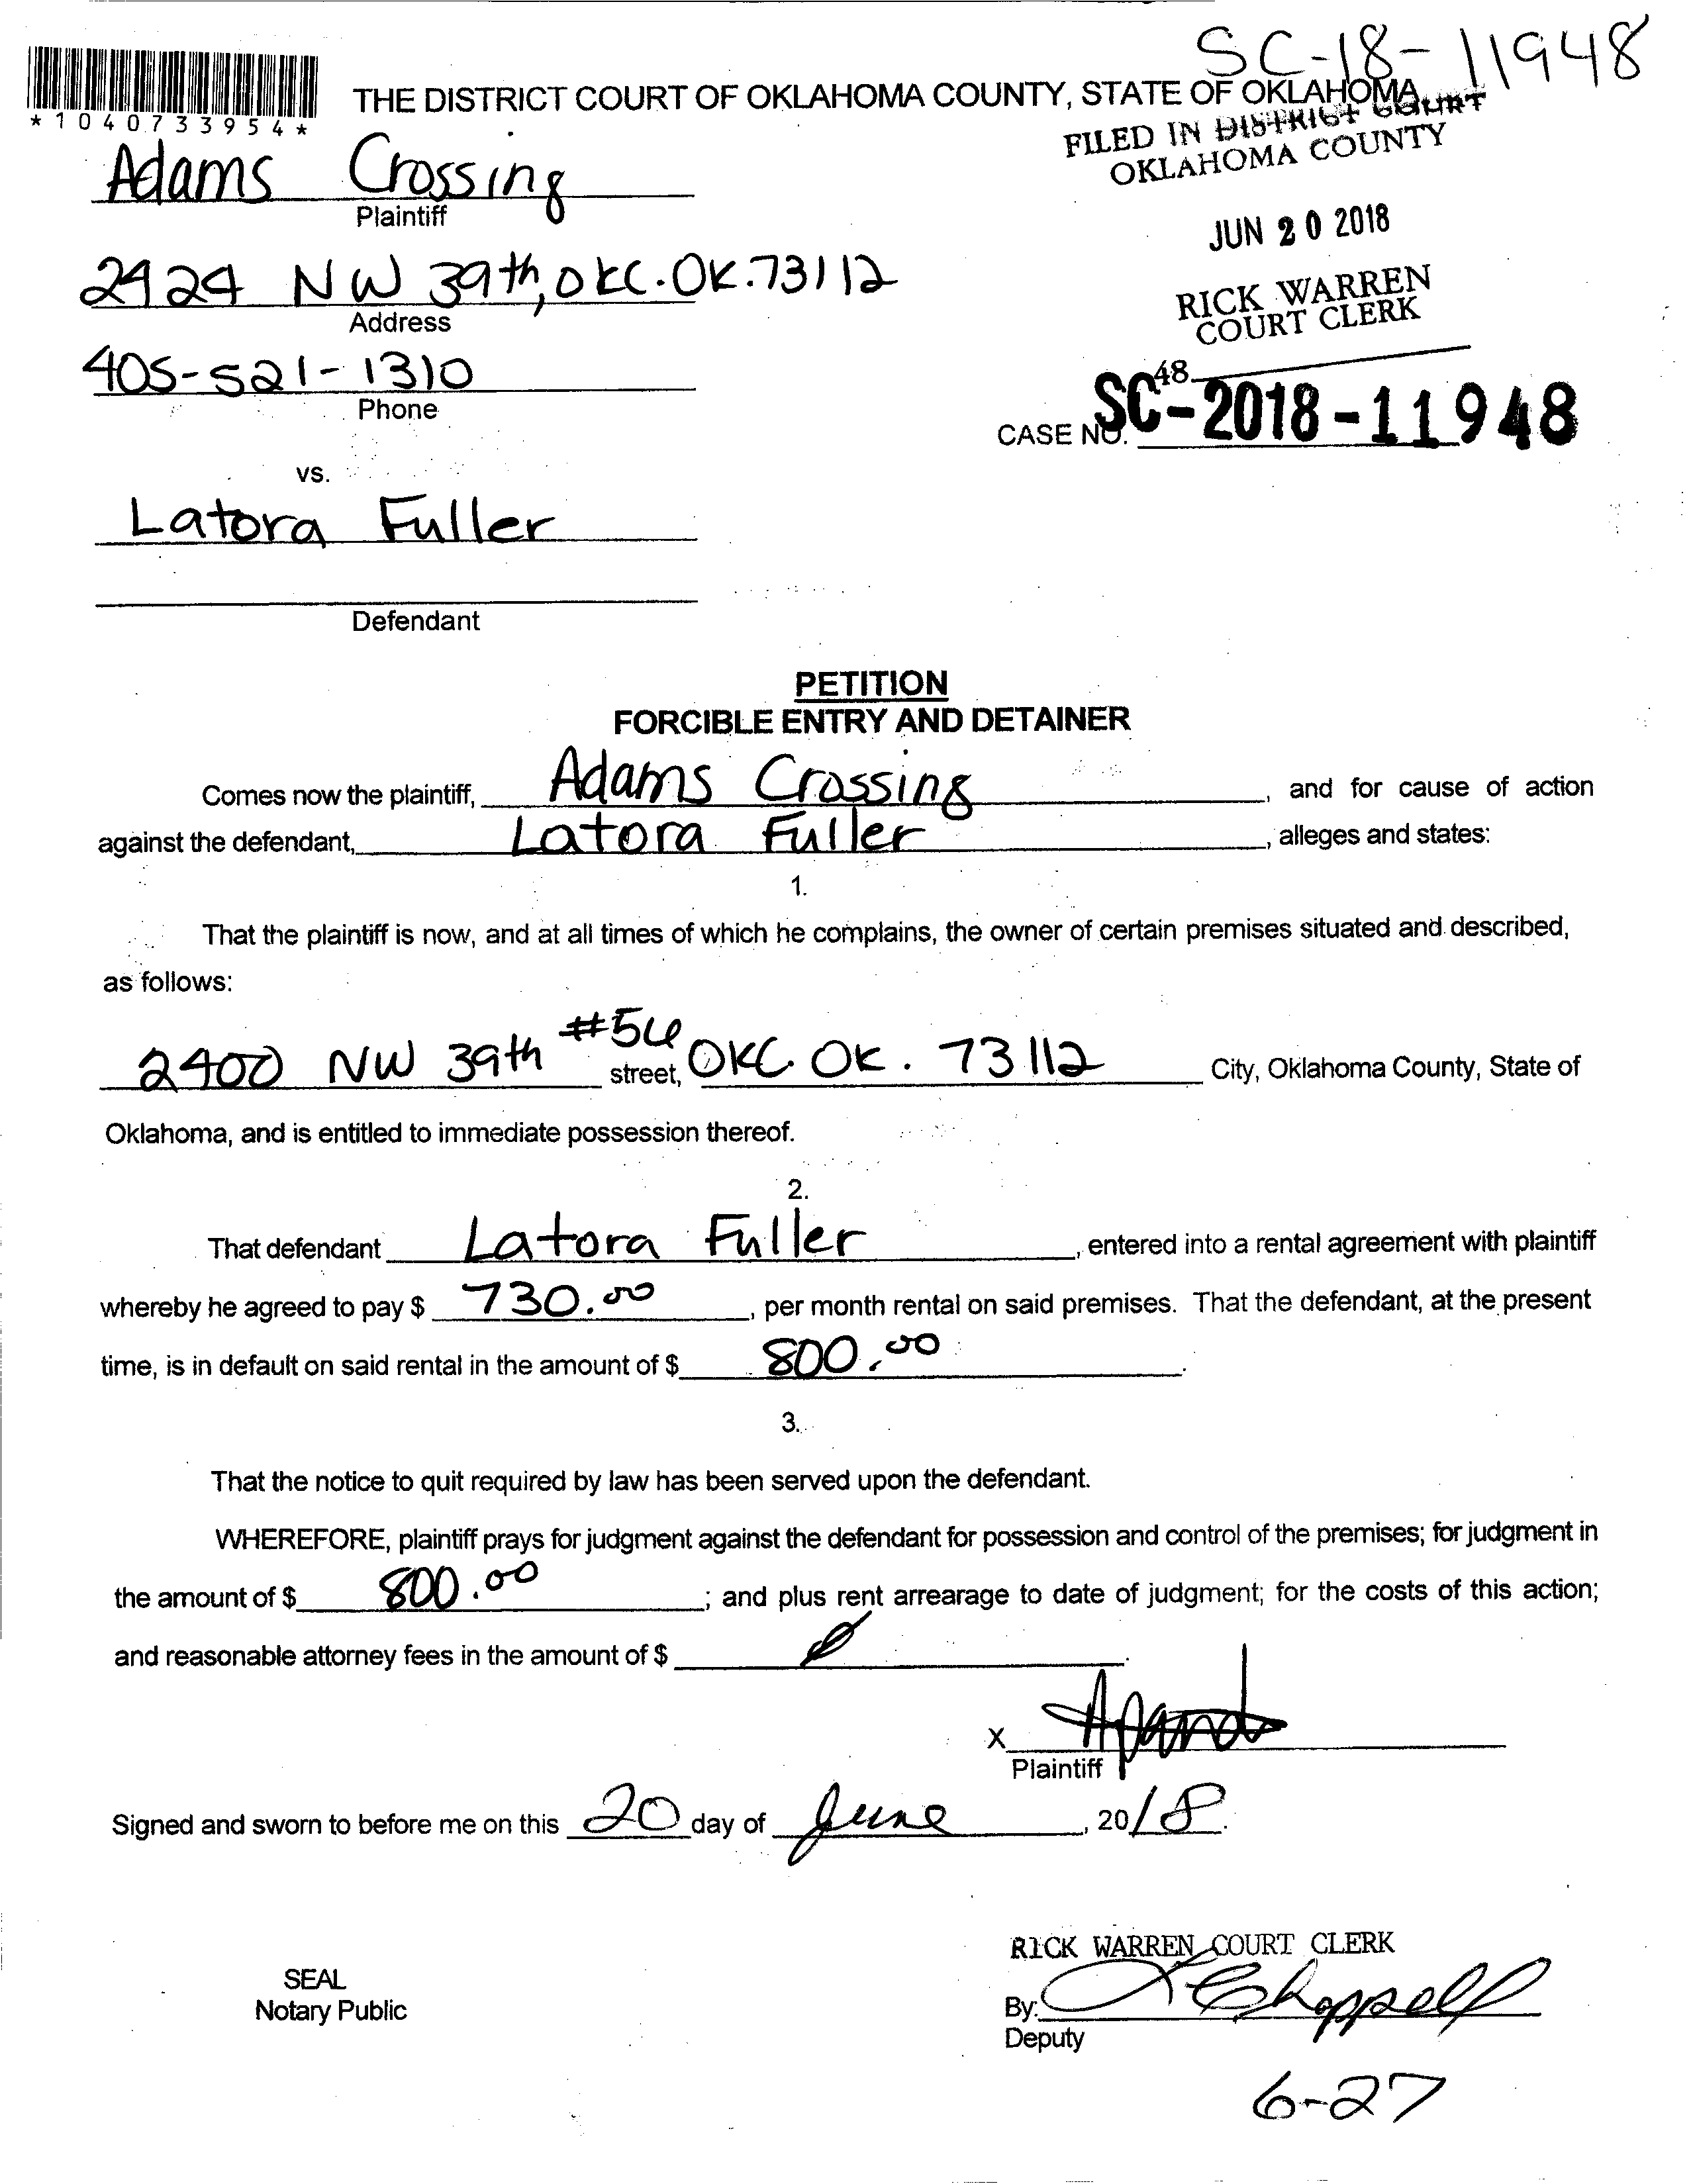 SC-18-11948
*1040733954*
THE DISTRICT COURT OF OKLAHOMA COUNTY, STATE OF OKLAHOMA
FILED IN DISTRICT COURT
OKLAHOMA COUNTY
Adams Crossing
Plaintiff
JUN 20 2018
2424 NW 39th, OKC. OK. 73112
Address
RICK WARREN
COURT CLERK
405-521-1310
Phone
48
CASE NO. SC-2018-11948
vs.
Latora Fuller
Defendant
PETITION
FORCIBLE ENTRY AND DETAINER
Comes now the plaintiff, Adams Crossing, and for cause of action
against the defendant, Latora Fuller, alleges and states:
1.
That the plaintiff is now, and at all times of which he complains, the owner of certain premises situated and described,
as follows:
2400 NW 39th #56 street, OKC. OK. 73112 City, Oklahoma County, State of
Oklahoma, and is entitled to immediate possession thereof.
2.
That defendant Latora Fuller, entered into a rental agreement with plaintiff
whereby he agreed to pay $ 730.00, per month rental on said premises. That the defendant, at the present
time, is in default on said rental in the amount of $ 800.00.
3.
That the notice to quit required by law has been served upon the defendant.
WHEREFORE, plaintiff prays for judgment against the defendant for possession and control of the premises; for judgment in
the amount of $ 800.00; and plus rent arrearage to date of judgment; for the costs of this action;
and reasonable attorney fees in the amount of $ .
X
Plaintiff
Signed and sworn to before me on this 20 day of June, 2018.
RICK WARREN COURT CLERK
SEAL
Notary Public
By: Chappell
Deputy
6-27